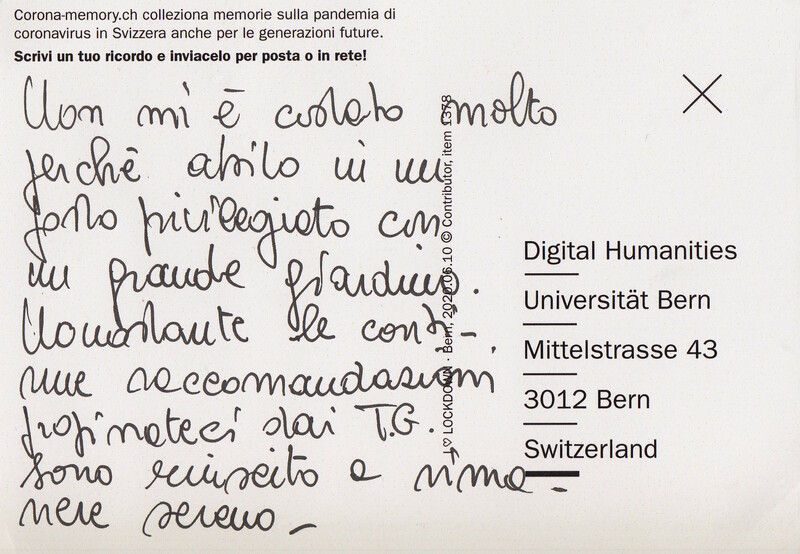 Corona-memory.ch colleziona memorie sulla pandemia di
coronavirus in Svizzera anche per le generazioni future.
Scrivi un tuo ricordo e inviacelo per posta o in rete!
Non mi è costato molto
perchè abito in un
posto privilegiato con
un grande giardino.
Nonostante le conti-
nue raccomandazioni
propinateci dai T.G.
sono riuscito a rima-
nere sereno -
I ♡ LOCKDOWN · Bern, 2020.06.10 © Contributor, item 1378
Digital Humanities
Universität Bern
Mittelstrasse 43
3012 Bern
Switzerland